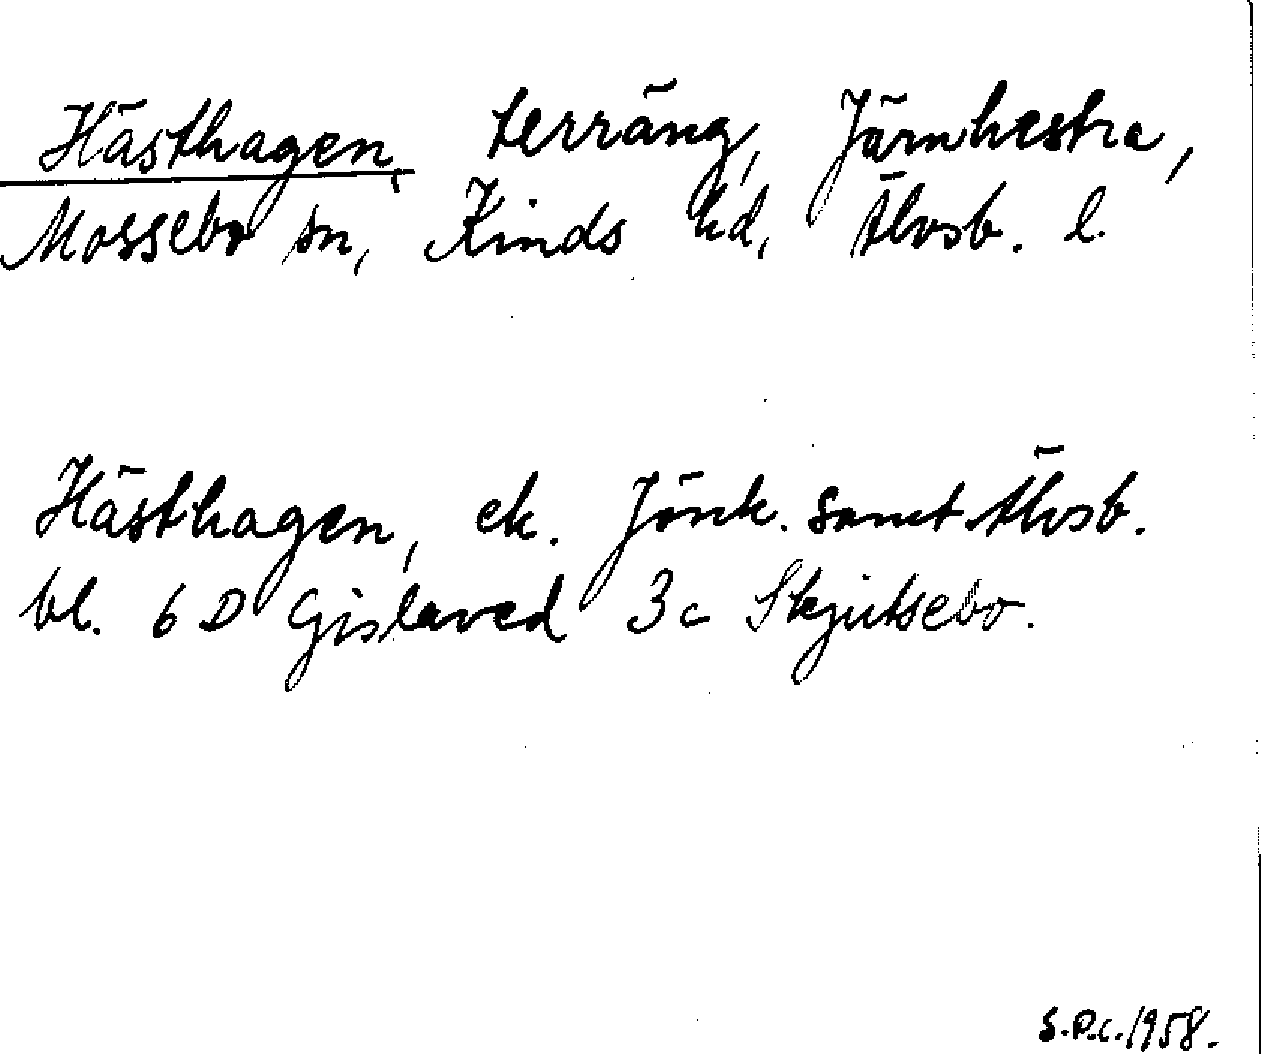 Hästhagen, terräng, Järnhestra,
Mossebo sn, Kinds hd, Älvsb. l.
Hästhagen, ek. Jönk. samt Älvsb.
bl. 6 D Gislaved 3c Skjutsebo.
S.P.C. 1958.